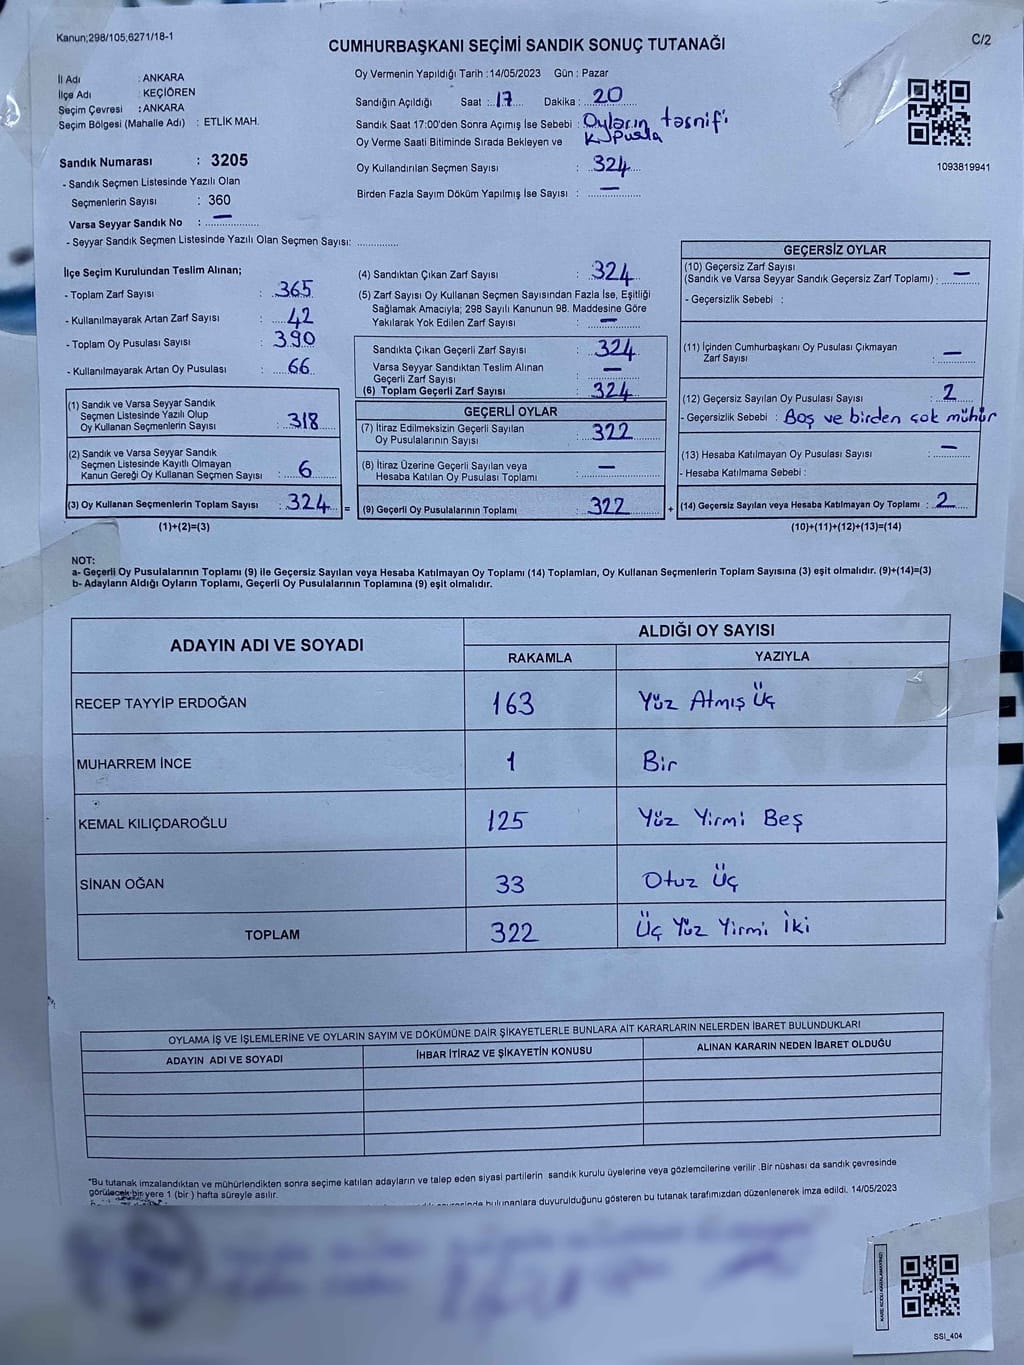 Kanun;298/105,6271/18-1
CUMHURBAŞKANI SEÇİMİ SANDIK SONUÇ TUTANAĞI
C/2
İl Adı : ANKARA
İlçe Adı : KEÇİÖREN
Seçim Çevresi : ANKARA
Seçim Bölgesi (Mahalle Adı) : ETLİK MAH.
Sandık Numarası : 3205
- Sandık Seçmen Listesinde Yazılı Olan
Seçmenlerin Sayısı : 360
Varsa Seyyar Sandık No : —
- Seyyar Sandık Seçmen Listesinde Yazılı Olan Seçmen Sayısı: ..............
Oy Vermenin Yapıldığı Tarih : 14/05/2023 Gün : Pazar
Sandığın Açıldığı Saat : 17 Dakika : 20
Sandık Saat 17:00'den Sonra Açımış İse Sebebi : Oyların tasnifi
Oy Verme Saati Bitiminde Sırada Bekleyen ve
Oy Kullandırılan Seçmen Sayısı : 324
Birden Fazla Sayım Döküm Yapılmış İse Sayısı : —
1093819941
İlçe Seçim Kurulundan Teslim Alınan;
- Toplam Zarf Sayısı : 365
- Kullanılmayarak Artan Zarf Sayısı : 42
- Toplam Oy Pusulası Sayısı : 390
- Kullanılmayarak Artan Oy Pusulası : 66
(1) Sandık ve Varsa Seyyar Sandık
Seçmen Listesinde Yazılı Olup
Oy Kullanan Seçmenlerin Sayısı : 318
(2) Sandık ve Varsa Seyyar Sandık
Seçmen Listesinde Kayıtlı Olmayan
Kanun Gereği Oy Kullanan Seçmen Sayısı : 6
(3) Oy Kullanan Seçmenlerin Toplam Sayısı : 324 =
(1)+(2)=(3)
(4) Sandıktan Çıkan Zarf Sayısı : 324
(5) Zarf Sayısı Oy Kullanan Seçmen Sayısından Fazla İse, Eşitliği
Sağlamak Amacıyla; 298 Sayılı Kanunun 98. Maddesine Göre
Yakılarak Yok Edilen Zarf Sayısı : —
Sandıkta Çıkan Geçerli Zarf Sayısı : 324
Varsa Seyyar Sandıktan Teslim Alınan
Geçerli Zarf Sayısı : —
(6) Toplam Geçerli Zarf Sayısı : 324
GEÇERLİ OYLAR
(7) İtiraz Edilmeksizin Geçerli Sayılan
Oy Pusulalarının Sayısı : 322
(8) İtiraz Üzerine Geçerli Sayılan veya
Hesaba Katılan Oy Pusulası Toplamı : —
(9) Geçerli Oy Pusulalarının Toplamı : 322 +
GEÇERSİZ OYLAR
(10) Geçersiz Zarf Sayısı
(Sandık ve Varsa Seyyar Sandık Geçersiz Zarf Toplamı) : —
- Geçersizlik Sebebi :
(11) İçinden Cumhurbaşkanı Oy Pusulası Çıkmayan
Zarf Sayısı : —
(12) Geçersiz Sayılan Oy Pusulası Sayısı : 2
- Geçersizlik Sebebi : Boş ve birden çok mühür
(13) Hesaba Katılmayan Oy Pusulası Sayısı : —
- Hesaba Katılmama Sebebi :
(14) Geçersiz Sayılan veya Hesaba Katılmayan Oy Toplamı : 2
(10)+(11)+(12)+(13)=(14)
NOT:
a- Geçerli Oy Pusulalarının Toplamı (9) ile Geçersiz Sayılan veya Hesaba Katılmayan Oy Toplamı (14) Toplamları, Oy Kullanan Seçmenlerin Toplam Sayısına (3) eşit olmalıdır. (9)+(14)=(3)
b- Adayların Aldığı Oyların Toplamı, Geçerli Oy Pusulalarının Toplamına (9) eşit olmalıdır.
ADAYIN ADI VE SOYADI
ALDIĞI OY SAYISI
RAKAMLA YAZIYLA
RECEP TAYYİP ERDOĞAN 163 Yüz Atmış Üç
MUHARREM İNCE 1 Bir
KEMAL KILIÇDAROĞLU 125 Yüz Yirmi Beş
SİNAN OĞAN 33 Otuz Üç
TOPLAM 322 Üç Yüz Yirmi İki
OYLAMA İŞ VE İŞLEMLERİNE VE OYLARIN SAYIM VE DÖKÜMÜNE DAİR ŞİKAYETLERLE BUNLARA AİT KARARLARIN NELERDEN İBARET BULUNDUKLARI
ADAYIN ADI VE SOYADI İHBAR İTİRAZ VE ŞİKAYETİN KONUSU ALINAN KARARIN NEDEN İBARET OLDUĞU
"Bu tutanak imzalandıktan ve mühürlendikten sonra seçime katılan adayların ve talep eden siyasi partilerin sandık kurulu üyelerine veya gözlemcilerine verilir .Bir nüshası da sandık çevresinde
görülecek bir yere 1 (bir ) hafta süreyle asılır.
bulunanlara duyurulduğunu gösteren bu tutanak tarafımızdan düzenlenerek imza edildi. 14/05/2023
SSI_404